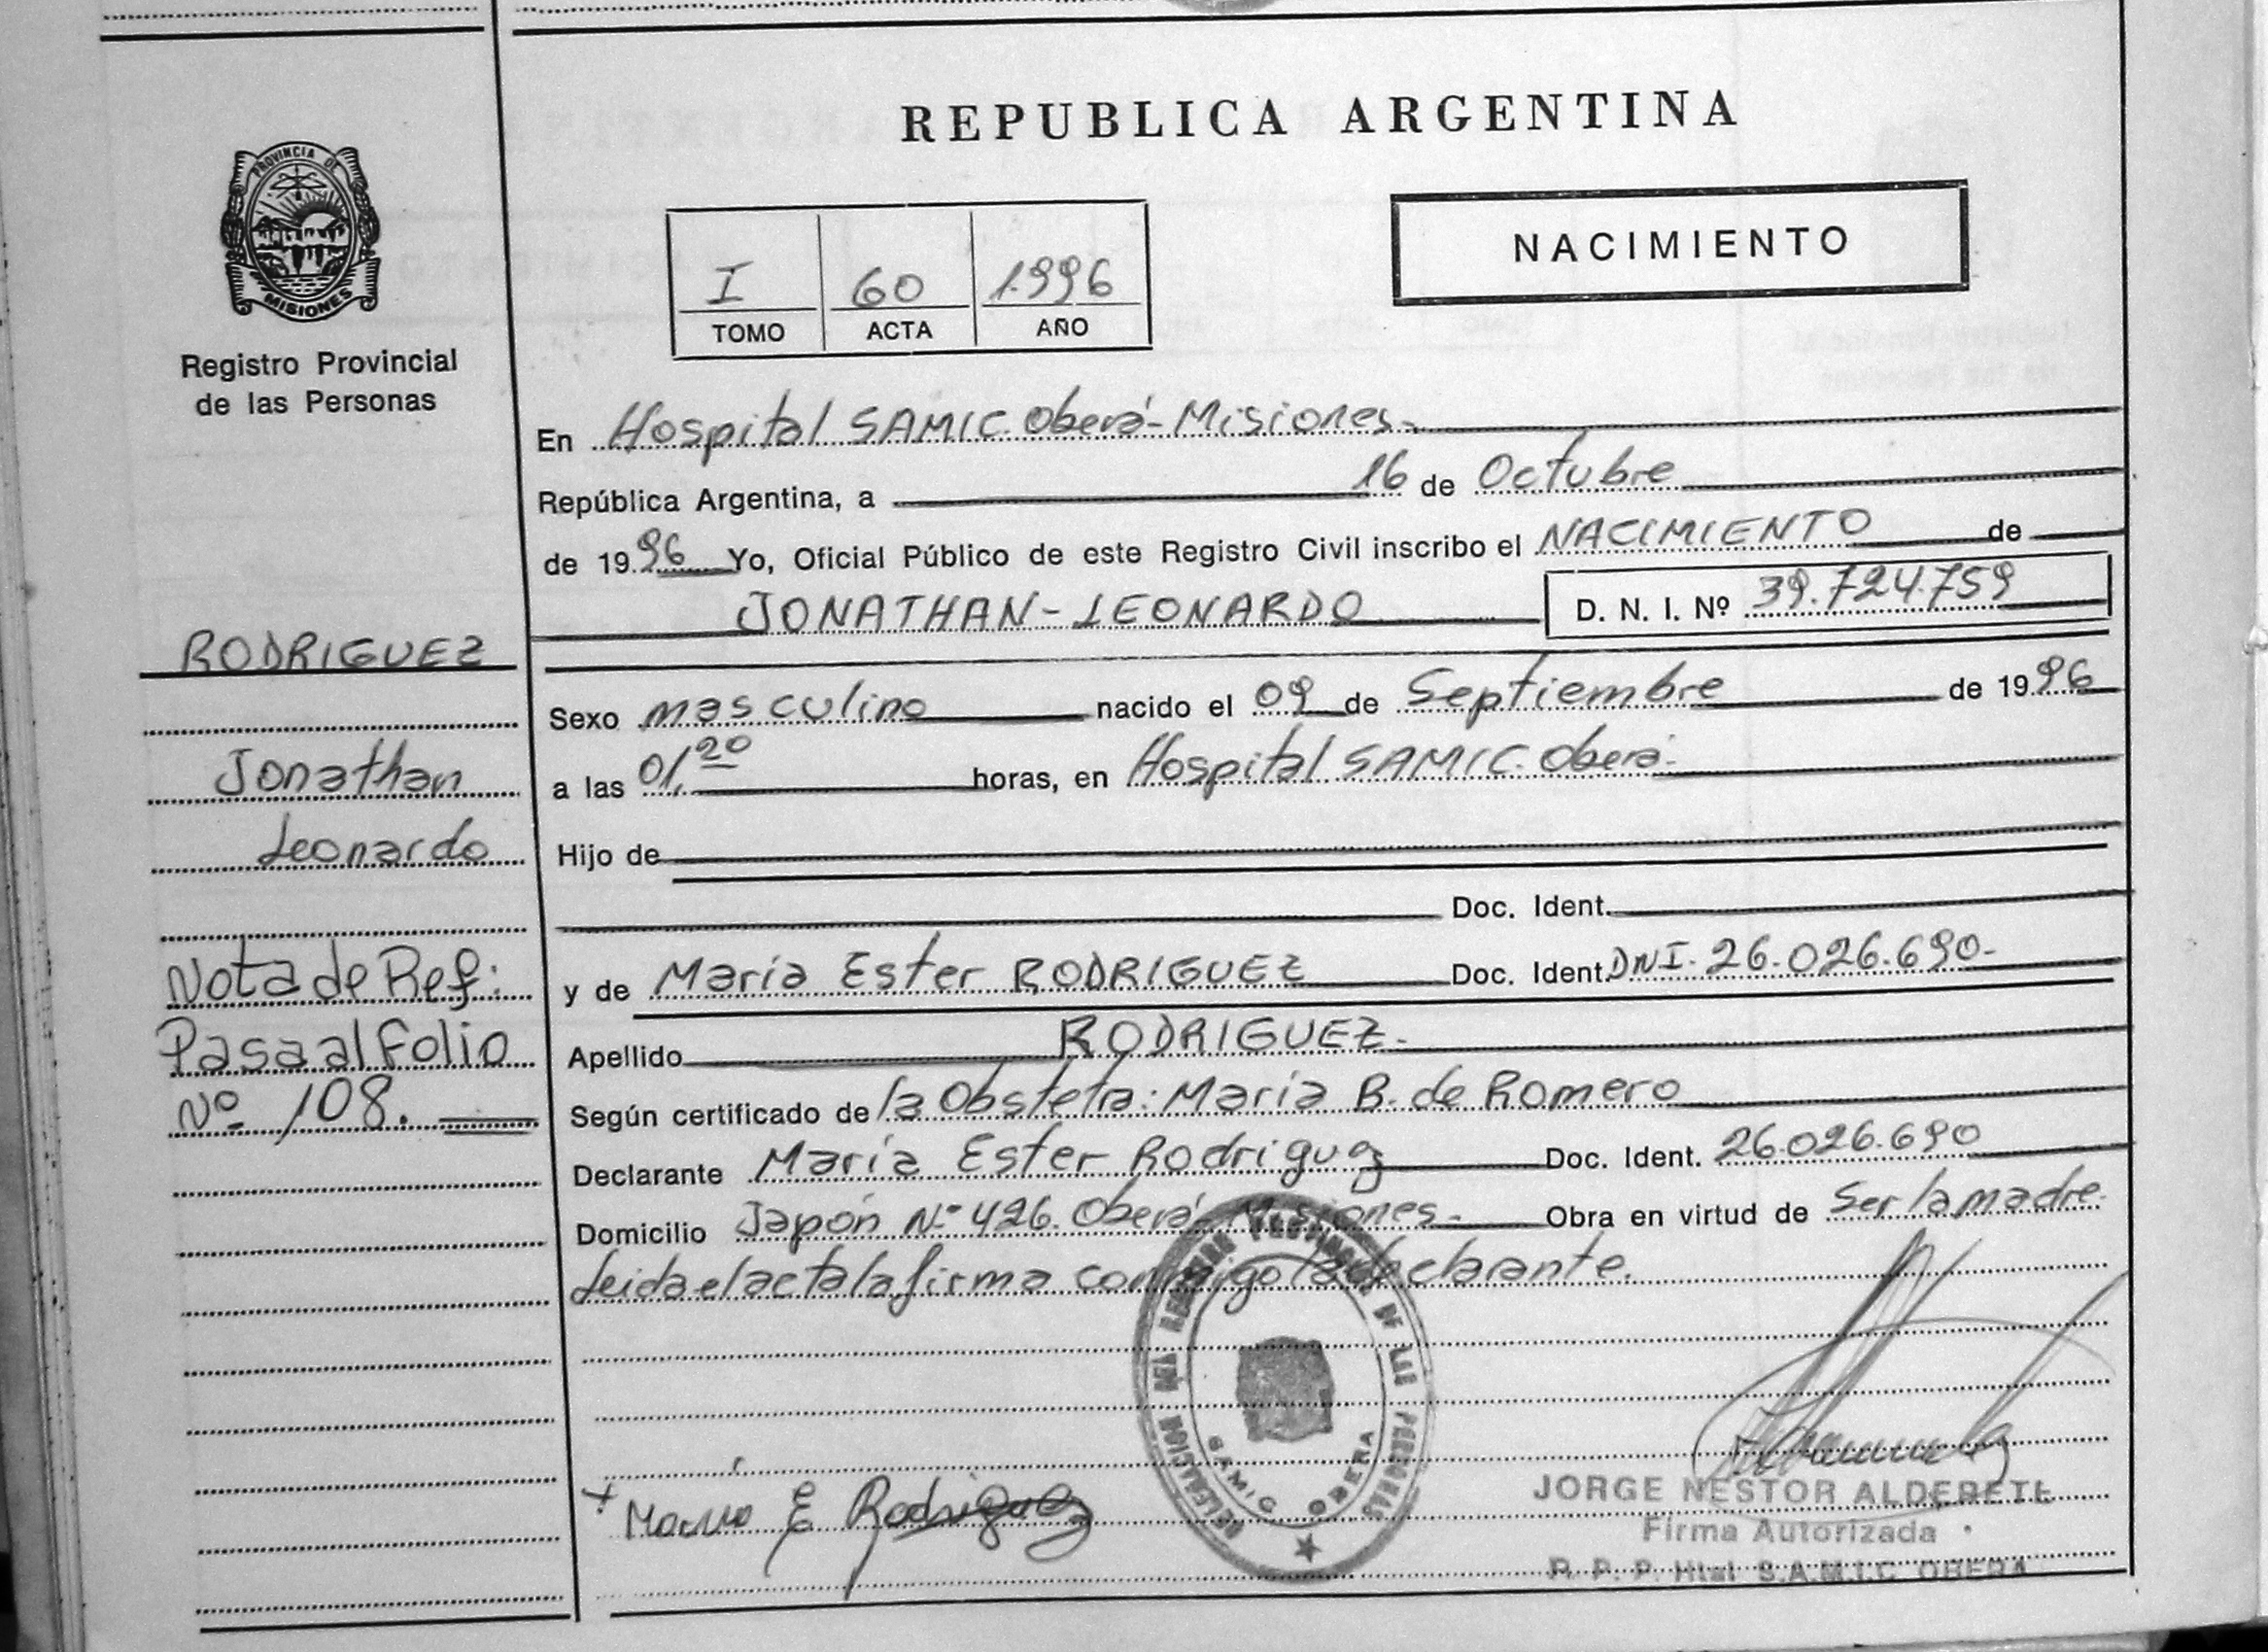 REPUBLICA ARGENTINA
PROVINCIA DE
MISIONES
Registro Provincial
de las Personas
NACIMIENTO
I 60 1.996
TOMO ACTA AÑO
En Hospital SAMIC. Oberá - Misiones.
República Argentina, a 16 de Octubre
de 1996 Yo, Oficial Público de este Registro Civil inscribo el NACIMIENTO de
JONATHAN - LEONARDO D. N. I. Nº 39.724.759
RODRIGUEZ
Sexo masculino nacido el 09 de Septiembre de 1996
Jonathan
a las 01,20 horas, en Hospital SAMIC. Oberá.
Leonardo
Hijo de
Doc. Ident.
Nota de Ref:
y de María Ester RODRIGUEZ Doc. Ident. DNI. 26.026.690.-
Pasa al Folio
Apellido RODRIGUEZ.-
Nº 108.
Según certificado de la Obstetra: María B. de Romero
Declarante María Ester Rodriguez Doc. Ident. 26.026.690
Domicilio Japón Nº 426. Oberá - Misiones.- Obra en virtud de Ser la madre.
Leida el acta la firma conmigo la declarante.
DELEGACION REGISTRO PROVINCIAL DE LAS PERSONAS
SAMIC OBERA
+ María E Rodriguez
JORGE NESTOR ALDERETE
Firma Autorizada
R. P. P. Htal S.A.M.I.C OBERA